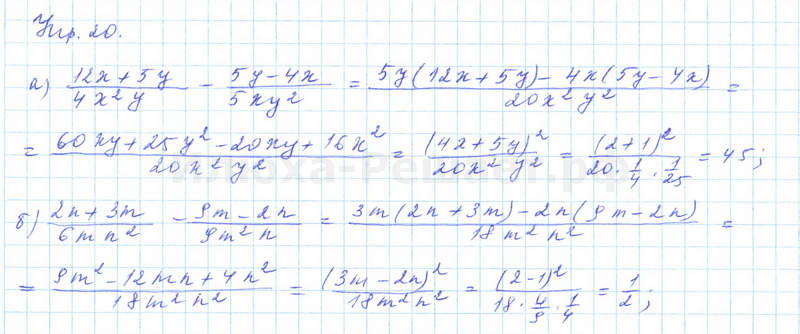 Упр. 20.
а) (12x + 5y)/(4x²y) − (5y − 4x)/(5xy²) = (5y(12x + 5y) − 4x(5y − 4x))/(20x²y²) =
= (60xy + 25y² − 20xy + 16x²)/(20x²y²) = (4x + 5y)²/(20x²y²) = (2 + 1)²/(20 · 1/4 · 1/25) = 45;
б) (2n + 3m)/(6mn²) − (9m − 2n)/(9m²n) = (3m(2n + 3m) − 2n(9m − 2n))/(18m²n²) =
= (9m² − 12mn + 4n²)/(18m²n²) = (3m − 2n)²/(18m²n²) = (2 − 1)²/(18 · 4/9 · 1/4) = 1/2;